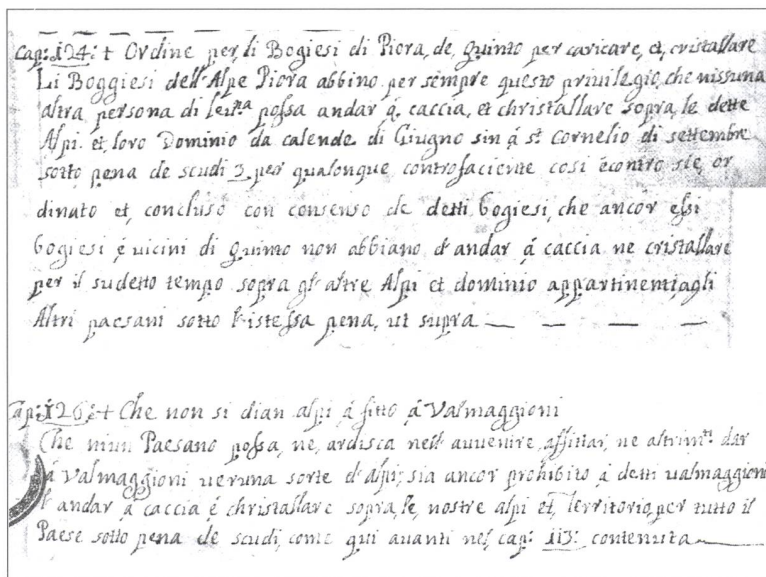 Cap: 124: + Ordine per, li Bogiesi di Piora, de, Quinto per caricare, et, cristallare
Li Boggiesi dell'Alpe Piora abbino per sempre questo privilegio, che nissuna
altra persona di possa andar á caccia, et christallare sopra, le dette
Alpi. et, loro Dominio da calende di Giugno sin á st. Cornelio di settembre
sotto pena de scudi 3 per qualonque controfaciente cosi écontro sie, or
dinato et, concluso con consenso de detti bogiesi, che ancor essi
bogiesi é vicini di Quinto non abbiano d'andar á caccia ne cristallare
per il sudetto tempo sopra gl'altre Alpi et dominio appartinenti, agli
Altri paesani sotto l'istessa pena, ut supra — — — —
Cap: 126: + Che non si dian alpi á fitto á Valmaggioni
Che niun Paesano possa, ne, ardisca nell'avvenire, affittar, ne altrimti. dar
á Valmaggioni veruna sorte d'alpi; sia ancor prohibito á detti valmaggioni
d'andar á caccia é christallare sopra, le, nostre alpi et, Territorio, per tutto il
Paese sotto pena de scudi, come qui avanti nel cap: 113: contenuta —